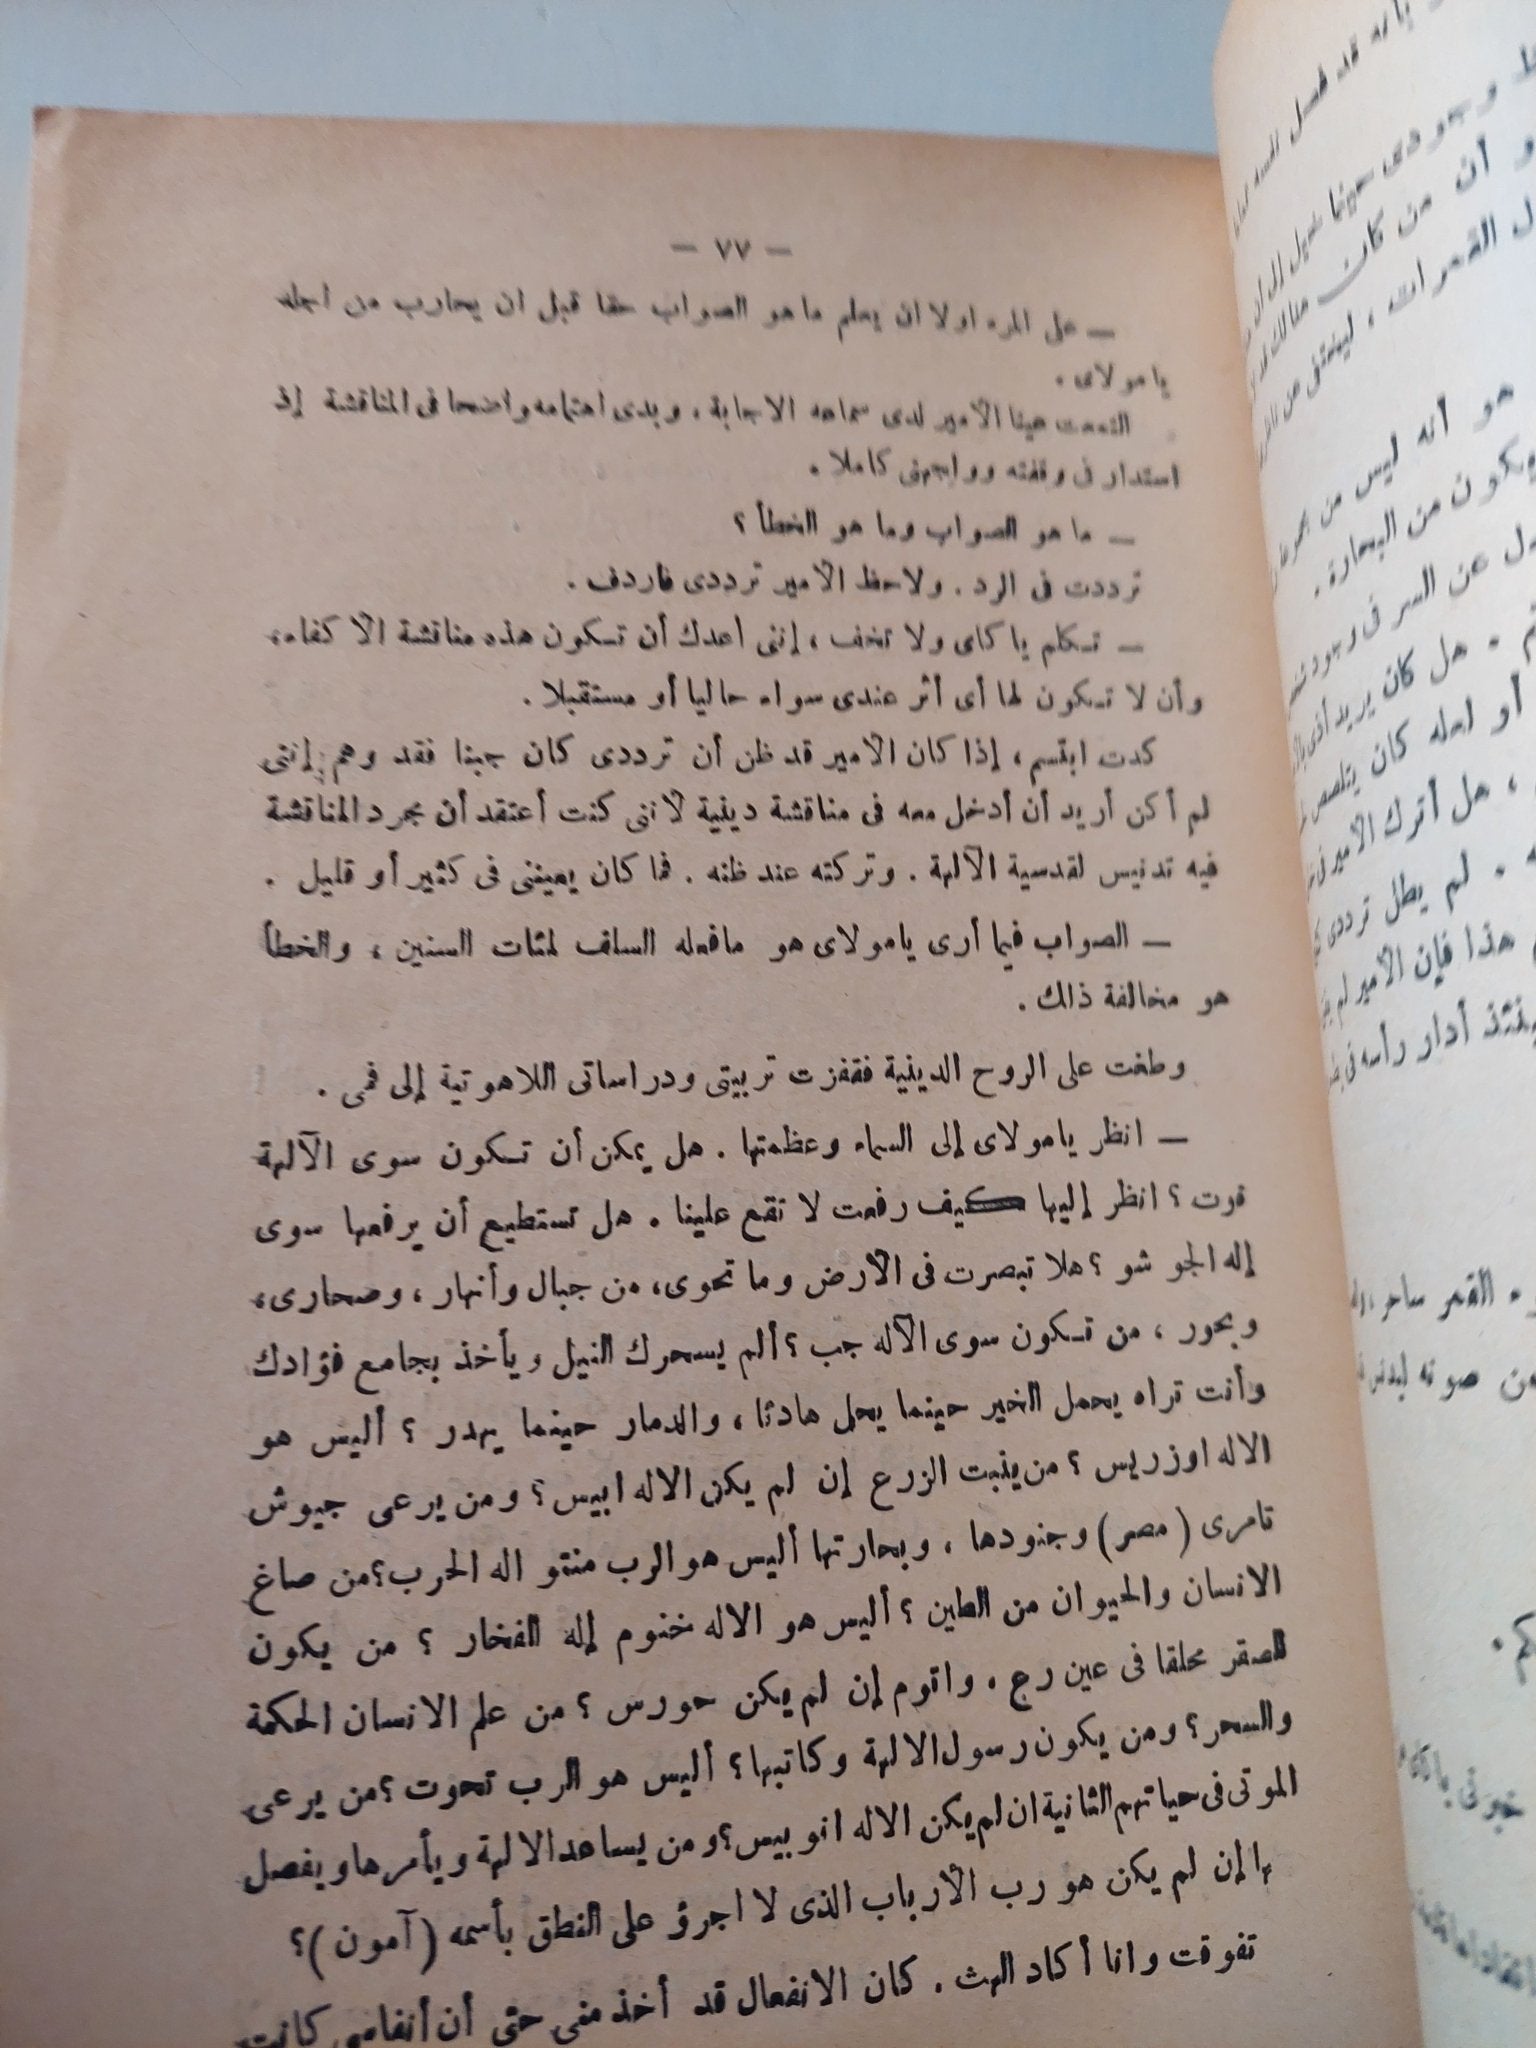 — ٧٧ —
— على المرء اولا ان يعلم ما هو الصواب حقا قبل ان يحارب من اجله
يا مولاى .
التمعت عينا الأمير لدى سماعه الاجابة ، وبدى اهتمامه واضحا فى المناقشة إذ
استدار فى وقفته وواجهنى كاملا .
— ما هو الصواب وما هو الخطأ ؟
ترددت فى الرد . ولاحظ الأمير ترددى فاردف .
— تكلم يا كاى ولا تخف ، إننى أعدك أن تكون هذه مناقشة الأكفاء،
وأن لا تكون لها أى أثر عندى سواء حاليا أو مستقبلا .
كدت ابتسم ، إذا كان الأمير قد ظن أن ترددى كان جبنا فقد وهم إننى
لم أكن أريد أن أدخل معه فى مناقشة دينية لأننى كنت أعتقد أن مجرد المناقشة
فيه تدنيس لقدسية الآلهة . وتركته عند ظنه . فما كان يعيننى فى كثير أو قليل .
— الصواب فيما أرى يامولاى هو مافعله السلف لمئات السنين ، والخطأ
هو مخالفة ذلك .
وطغت على الروح الدينية فقفزت تربيتى ودراساتى اللاهوتية إلى فمى .
— انظر يامولاى إلى السماء وعظمتها . هل يمكن أن تكون سوى الآلهة
نوت ؟ انظر إليها كيف رفعت لا تقع علينا . هل تستطيع أن يرفعها سوى
إله الجو شو ؟ هلا تبصرت فى الأرض وما تحوى، من جبال وأنهار ، وصحارى،
وبحور ، من تكون سوى الآله جب ؟ ألم يسحرك النيل ويأخذ بجامع فؤادك
وأنت تراه يحمل الخير حينما يحل هادئا ، والدمار حينما يهدر ؟ أليس هو
الاله اوزريس ؟ من ينبت الزرع إن لم يكن الاله ابيس ؟ ومن يرعى جيوش
تامرى ( مصر ) وجنودها ، وبحارتها أليس هو الرب منتو اله الحرب ؟ من صاغ
الانسان والحيوان من الطين ؟ أليس هو الاله خنوم إله الفخار ؟ من يكون
الصقر محلقا فى عين رع . واتوم إن لم يكن حورس ؟ من علم الانسان الحكمة
والسحر ؟ ومن يكون رسول الالهة وكاتبها ؟ أليس هو الرب تحوت ؟ من يرعى
الموتى فى حياتهم الثانية ان لم يكن الاله انوبيس ؟ ومن يساعد الالهة ويأمرها ويفصل
إن لم يكن هو رب الأرباب الذى لا اجرؤ على النطق بأسمه ( آمون ) ؟
تفوقت وانا أكاد الهث . كان الانفعال قد أخذ منى حتى أن أنفاسى كانت
قد فصل
وجودى حينما خيل إلى أن
و أن من كان هنالك
هو أنه ليس من
ويكون من البحارة .
عن السر فى وجود
. هل كان يريد أذى
أو لعله كان يتلصص
، هل أترك الأمير
. لم يطل ترددى
هذا فإن الأمير لم
أدار رأسه فى
القمر ساحر
صوته